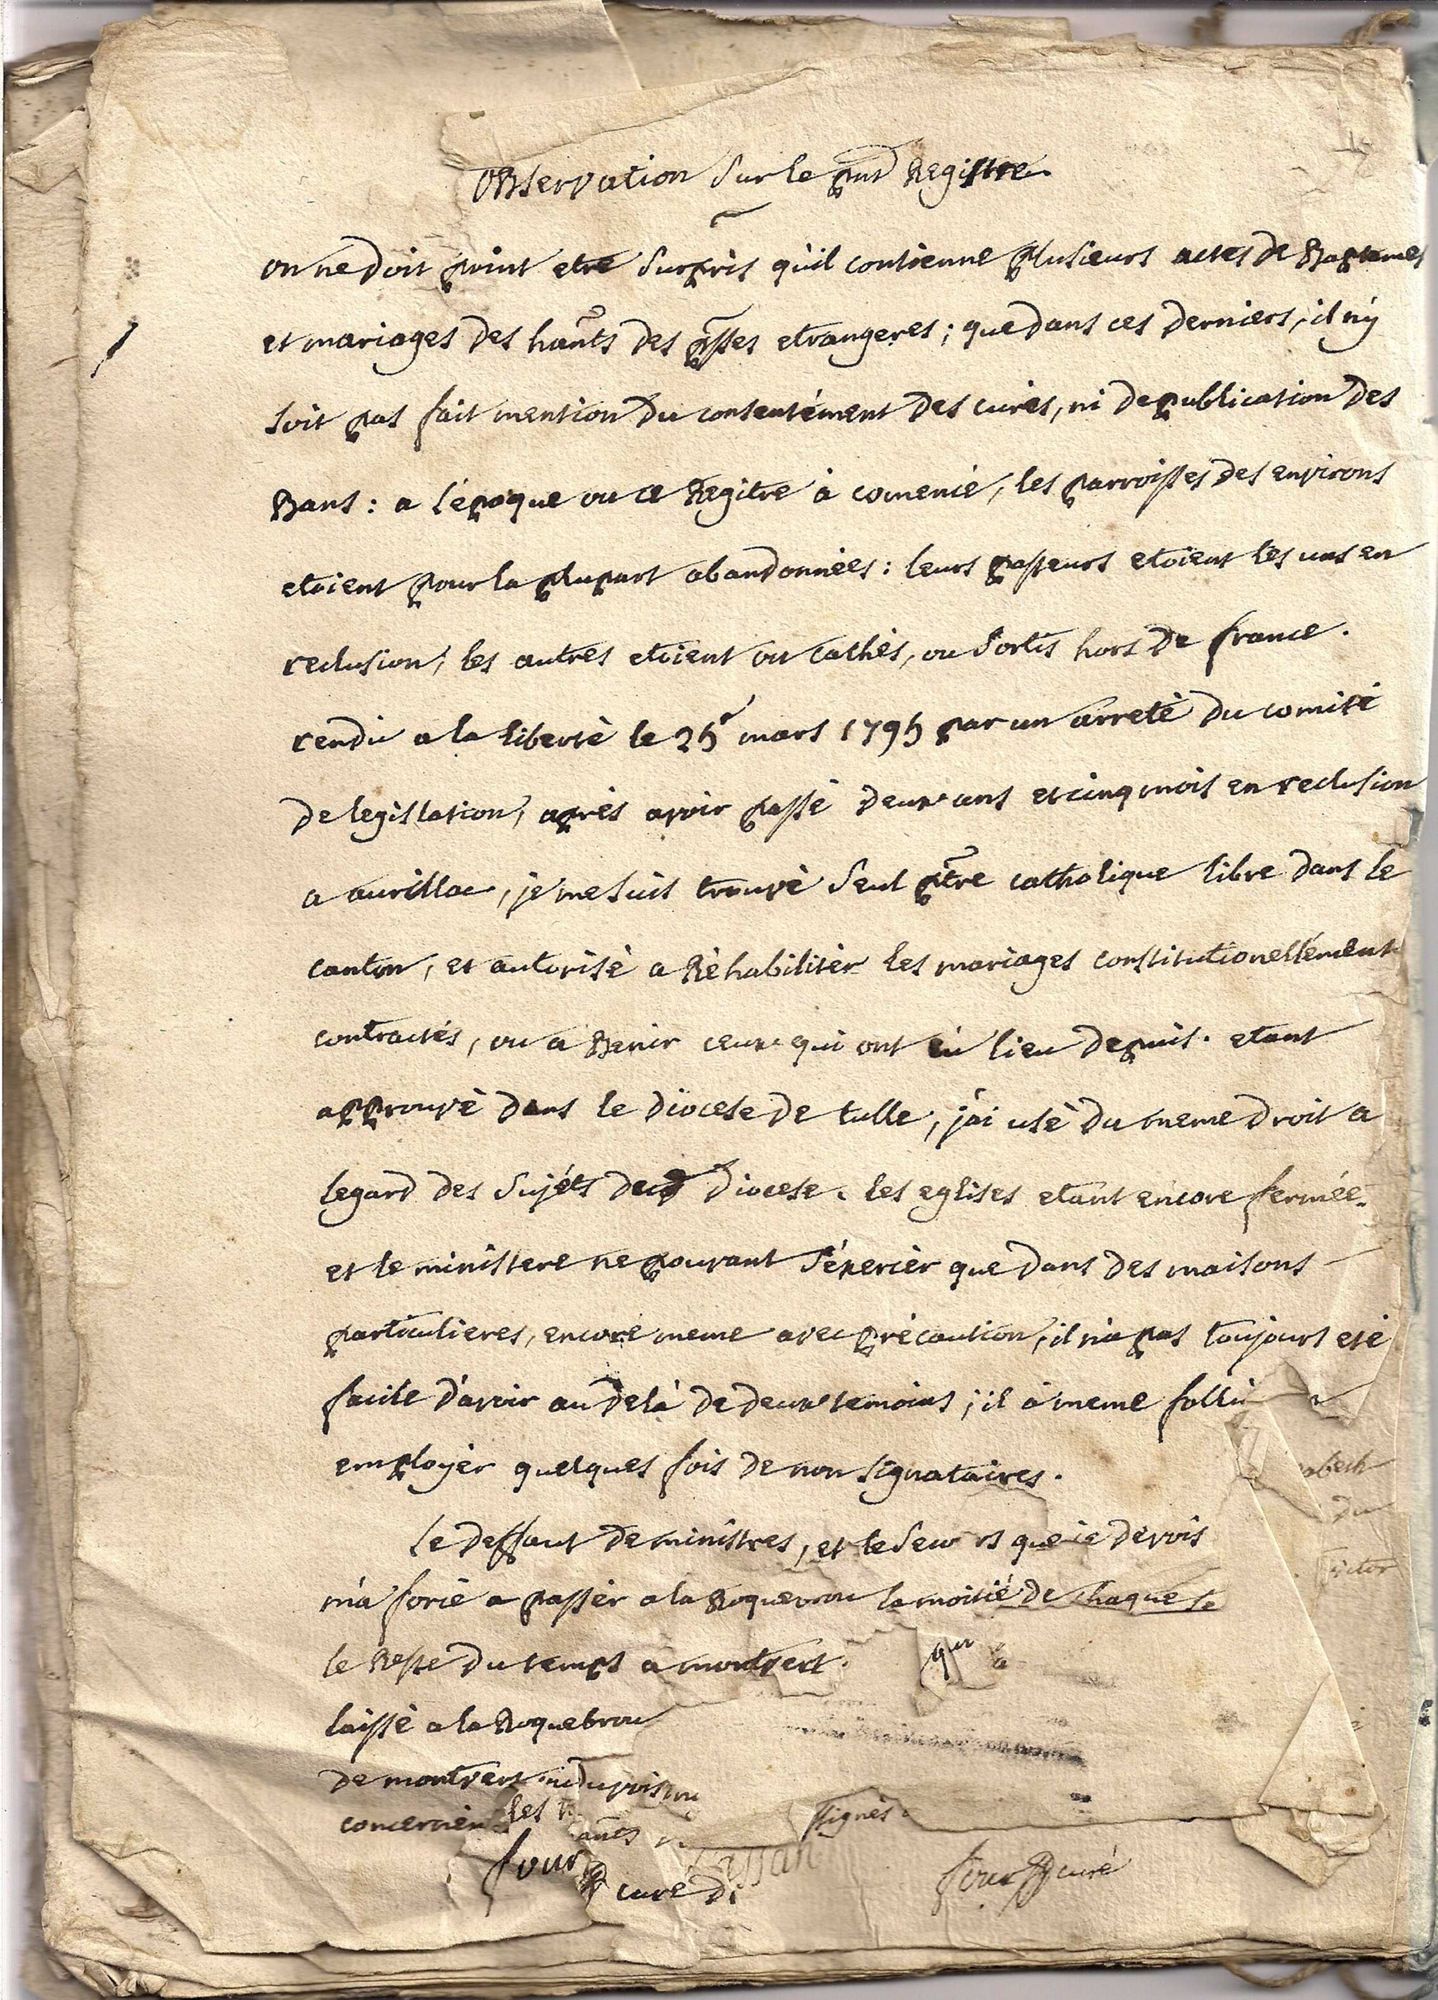 OBservation Sur le pnt Registre
on ne doit point etre Surpris qu'il contienne plusieurs actes de Baptemes
et mariages des hants des psses etrangeres; que dans ces derniers, il n'y
soit pas fait mention du consentément des curés, ni de publication des
Bans: a l'époque ou ce Regitre à comencé, les parroisses des environs
etoient pour la plupart abandonnées: leurs pasteurs etoient les uns en
reclusion, les autres etoient ou cachés, ou Sortis hors de france.
rendu a la liberté le 25e mars 1795 par un arreté du comité
de legislation, après avoir passé deux ans et cinq mois en reclusion
a aurillac, je me suis trouvé Seul ptre catholique libre dans le
canton, et autorisé a Réhabilitér les mariages constitutionellément
contractés, ou a Benir ceux qui ont eu lieu depuis. etant
approuvé dans le diocese de tulle, j'ai usé du meme droit a
legard des Sujéts dud diocese. les eglises etant encore fermée
et le ministere ne pouvant S'éxercér que dans des maisons
particulieres, encore meme avec précaution, il n'a pas toujours eté
facile d'avoir au dela de deux temoins; il à meme fallu
employér quelques fois de non signataires.
Le deffaut de ministres, et le Secours que je devois
m'a forcé a passér a la Roquebrou la moitié de chaque Se
le Reste du temps a montvert.
qui a
laissé a la Roquebrou
de montvert
concernén les
ants
signés
four curé di
four curé
abeth
du
ictor